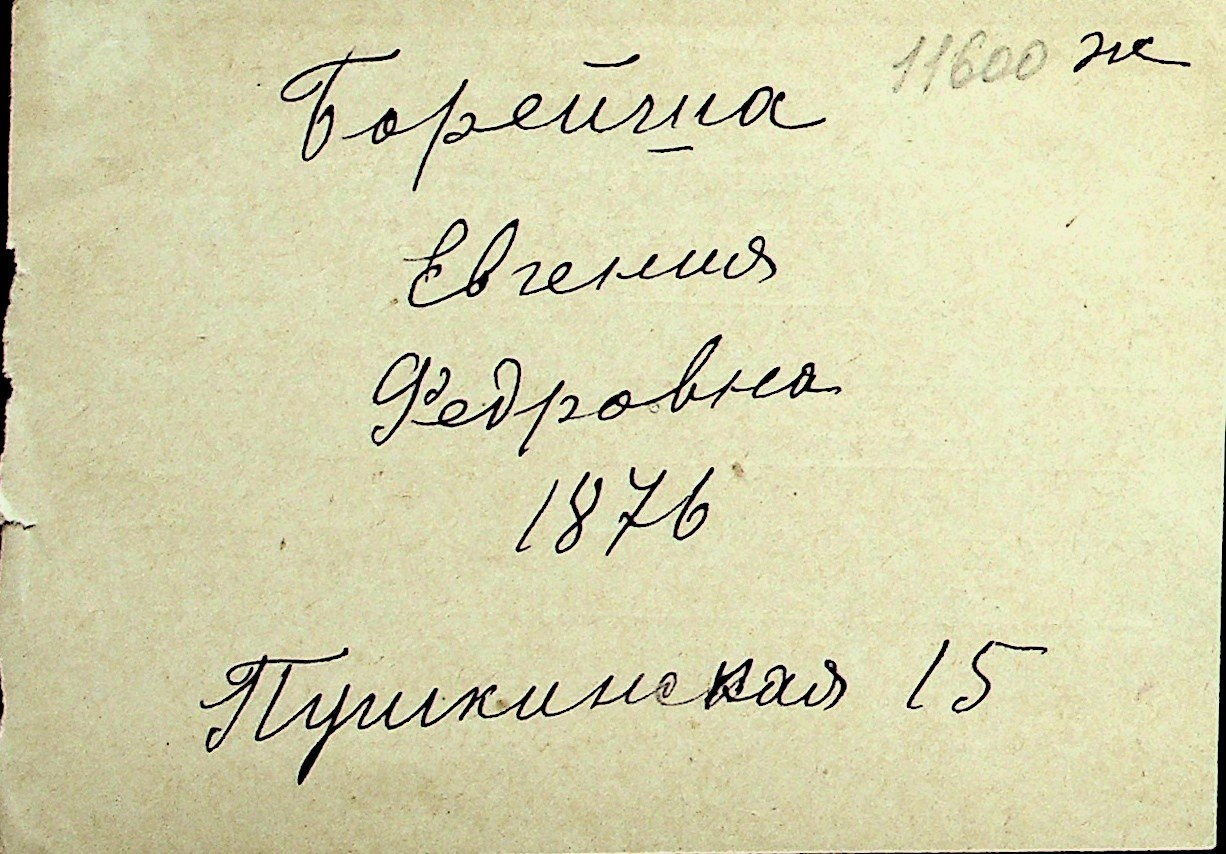 11600 ж
Борейша
Евгения
Федровна
1876
Пушкинская 15